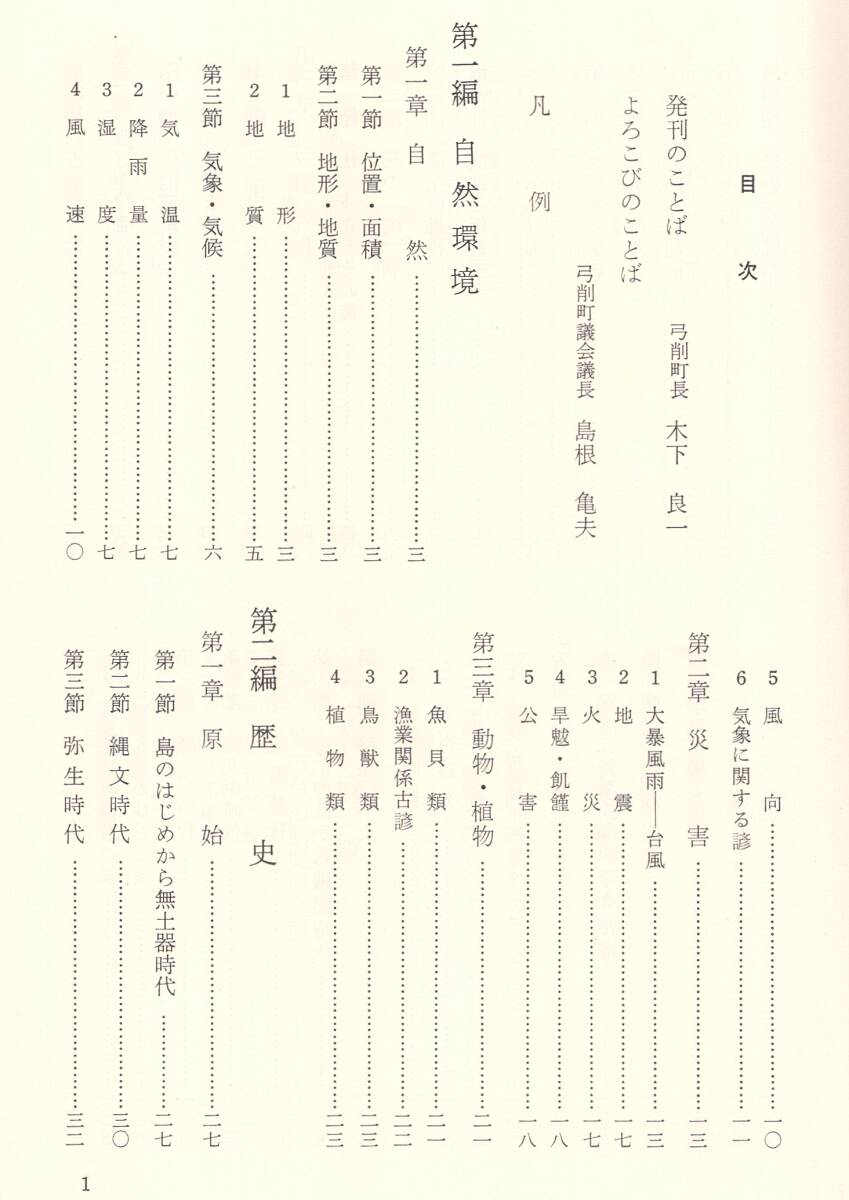 目次
発刊のことば 弓削町長 木下 良一
よろこびのことば
弓削町議会議長 島根 亀夫
凡例
第一編 自然環境
第一章 自然……三
第一節 位置・面積……三
第二節 地形・地質……三
1 地形……三
2 地質……五
第三節 気象・気候……六
1 気温……七
2 降雨量……七
3 湿度……七
4 風速……一〇
5 風向……一〇
6 気象に関する諺……一一
第二章 災害……一三
1 大暴風雨――台風……一三
2 地震……一七
3 火災……一七
4 旱魃・飢饉……一八
5 公害……一八
第三章 動物・植物……二一
1 魚貝類……二一
2 漁業関係古諺……二二
3 鳥獣類……二三
4 植物類……二三
第二編 歴史
第一章 原始……二七
第一節 島のはじめから無土器時代……二七
第二節 縄文時代……三〇
第三節 弥生時代……三二
1